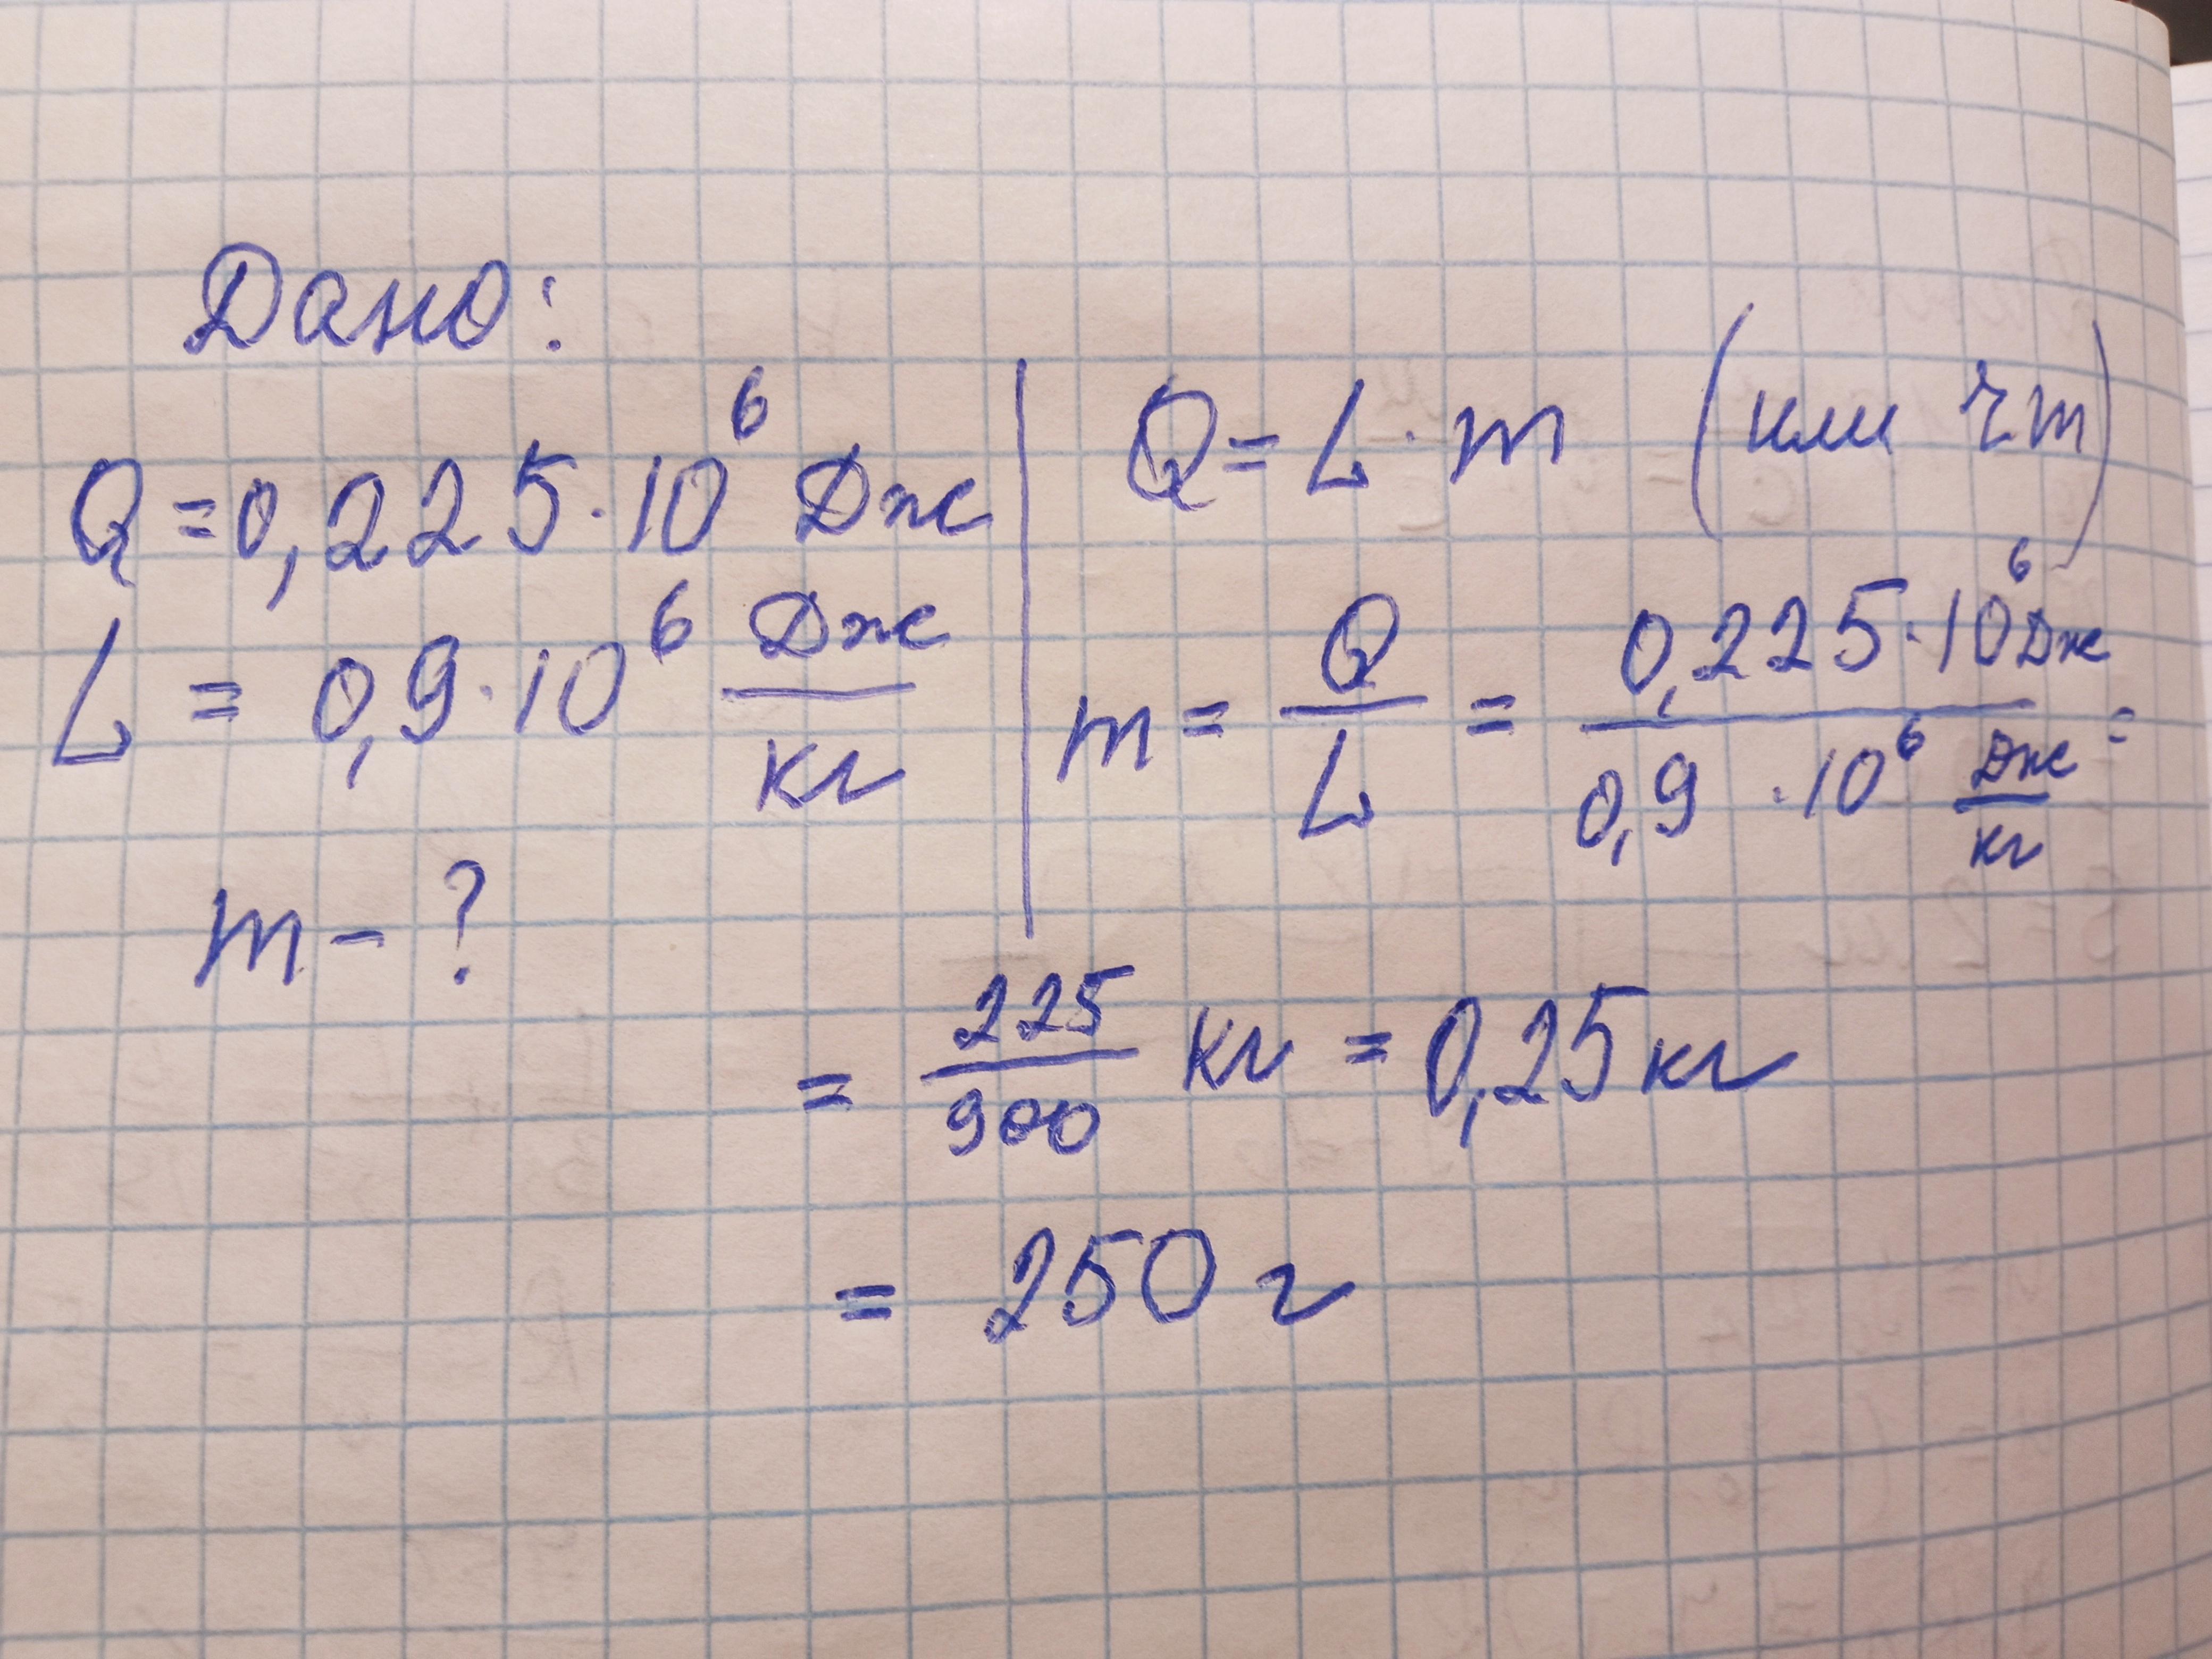 Дано:
Q = 0,225·10⁶ Дж
L = 0,9·10⁶ Дж/кг
m - ?
Q = L·m (или rm)
m = Q/L = 0,225·10⁶ Дж / 0,9·10⁶ Дж/кг =
= 225/900 кг = 0,25 кг
= 250 г